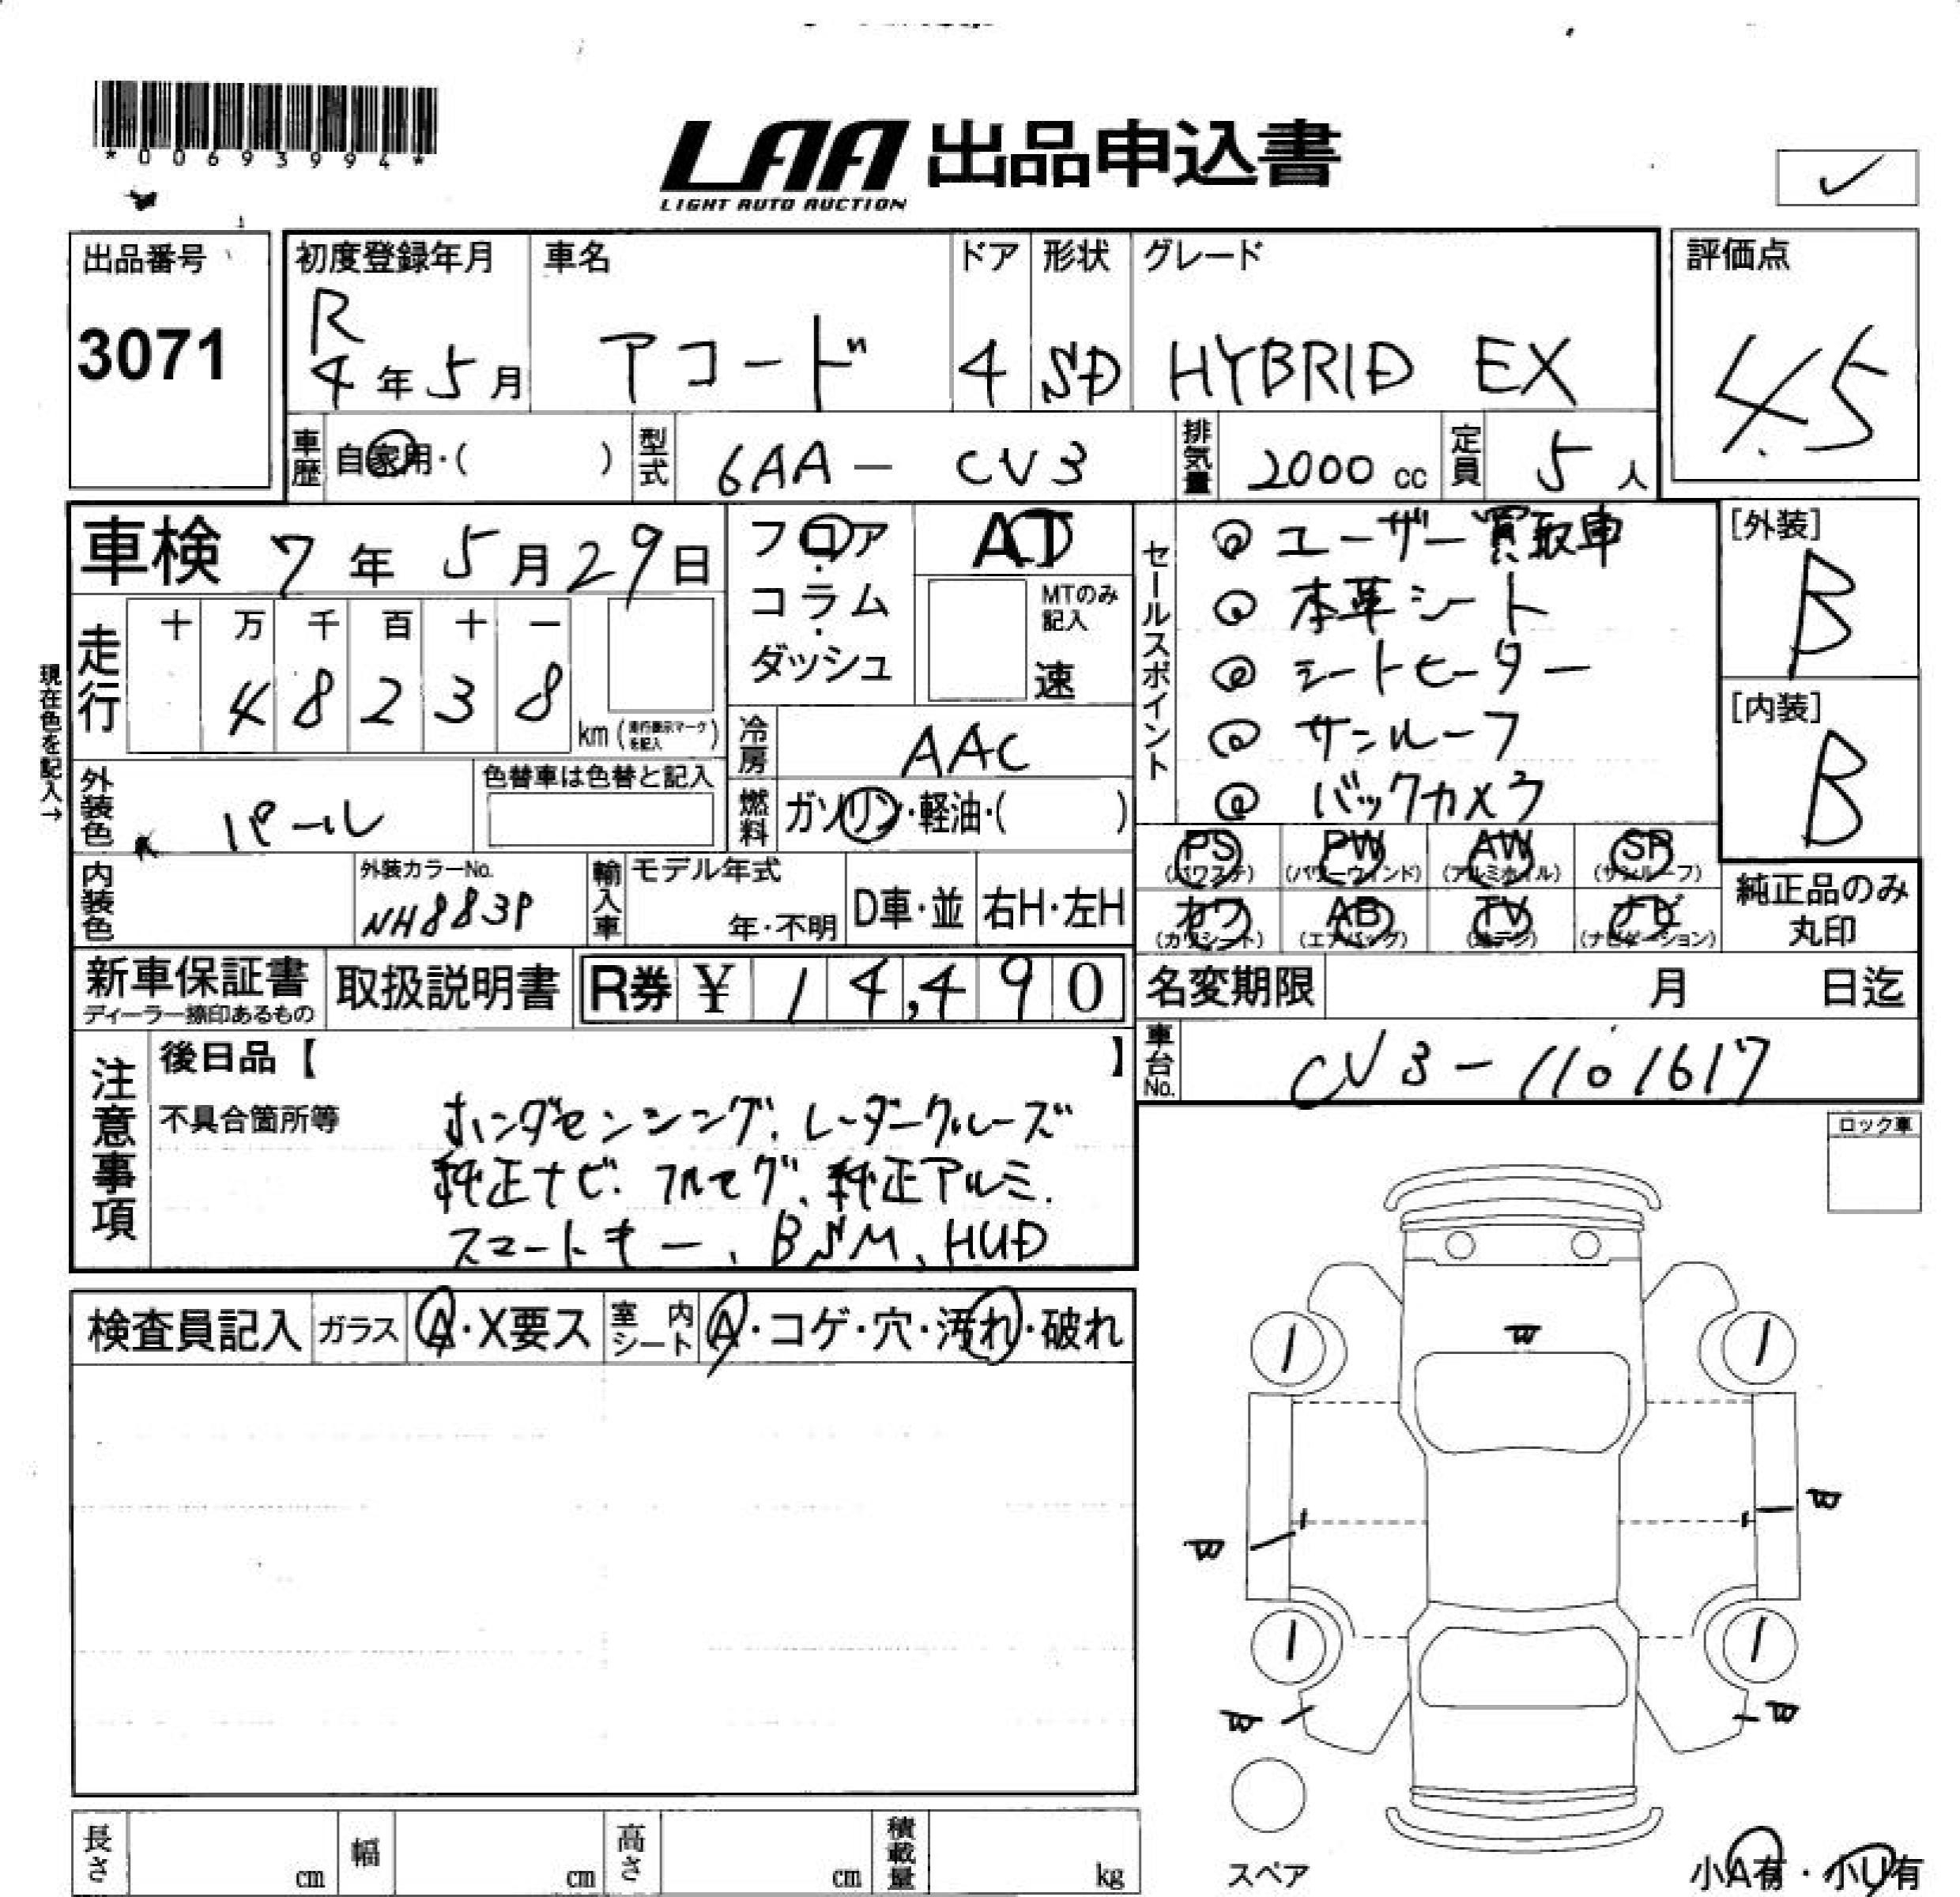 *00693994*
LAA 出品申込書
LIGHT AUTO AUCTION
出品番号
3071
初度登録年月
R
4年5月
車名
アコード
ドア
4
形状
SD
グレード
HYBRID EX
評価点
4.5
車歴
自家用・( )
型式
6AA - CV3
排気量
2000 cc
定員
5人
車検 7年5月29日
フロア・コラム・ダッシュ
AT
MTのみ記入
速
セールスポイント
◎ ユーザー買取車
◎ 本革シート
◎ シートヒーター
◎ サンルーフ
◎ バックカメラ
[外装]
B
[内装]
B
現在色を記入→
走行
十 万 千 百 十 一
4 8 2 3 8
km (走行表示マークを記入)
冷房
AAC
外装色
パール
色替車は色替と記入
燃料
ガソリン・軽油・( )
PS
(パワステ)
PW
(パワーウインド)
AW
(アルミホイル)
SR
(サンルーフ)
内装色
外装カラーNo.
NH883P
輸入車
モデル年式
年・不明
D車・並
右H・左H
カワ
(カワシート)
AB
(エアバッグ)
TV
ナビ
(ナビゲーション)
純正品のみ
丸印
新車保証書
ディーラー捺印あるもの
取扱説明書
R券 ¥ 14,490
名変期限 月 日迄
車台No.
CV3-1101617
注意事項
後日品【 】
不具合箇所等
ホンダセンシング、レーダークルーズ
純正ナビ、フルセグ、純正アルミ、
スマートキー、BSM、HUD
ロック車
検査員記入
ガラス
A・X要ス
室内シート
A・コゲ・穴・汚れ・破れ
W
W
W
W
W
スペア
長さ cm
幅 cm
高さ cm
積載量 kg
小A有・小U有